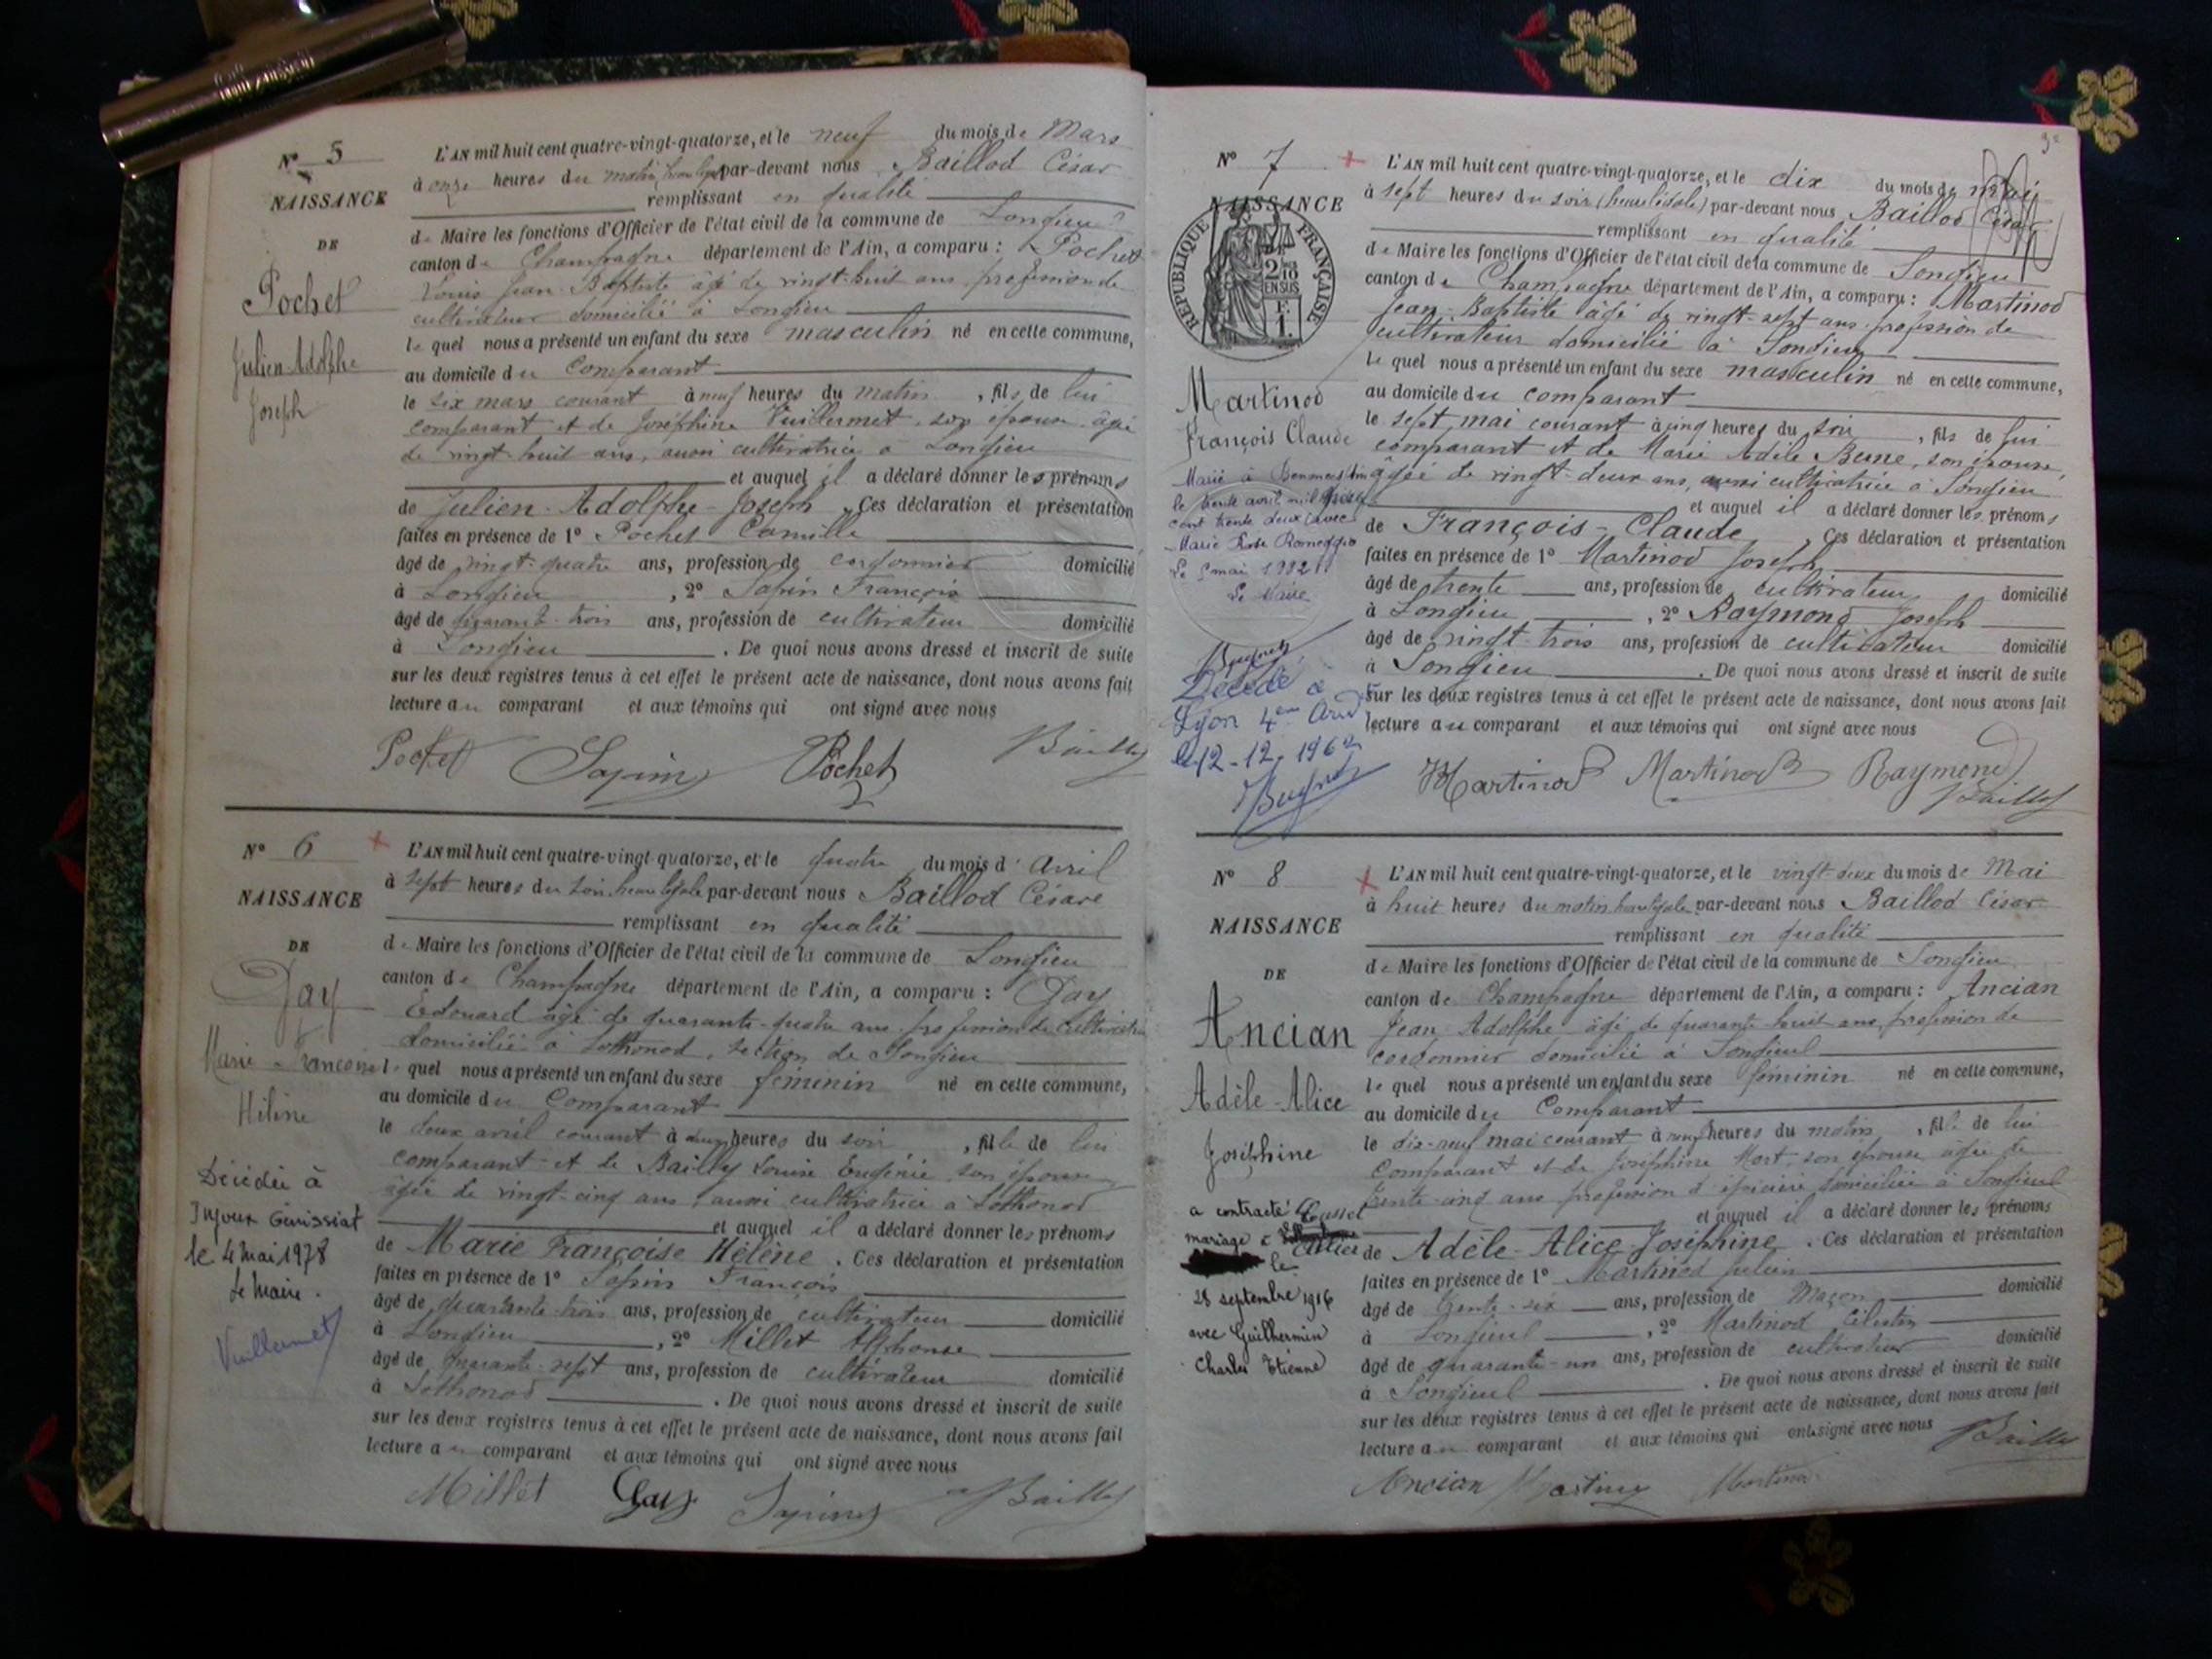 N° 5
NAISSANCE
DE
Pochet
Julien-Adolphe
Joseph
L'AN mil huit cent quatre-vingt-quatorze, et le neuf du mois de Mars
à onze heures du matin par-devant nous Baillod César
remplissant en qualité
de Maire les fonctions d'Officier de l'état civil de la commune de Songieu
canton de Champagne département de l'Ain, a comparu : Pochet
Louis Jean-Baptiste âgé de vingt-huit ans profession de
cultivateur domicilié à Songieu
lequel nous a présenté un enfant du sexe masculin né en cette commune,
au domicile du Comparant
le six mars courant à neuf heures du matin, fils de lui
comparant et de Joséphine Vuillermet son épouse âgée
de vingt-huit ans, aussi cultivatrice à Songieu
et auquel il a déclaré donner les prénoms
de Julien-Adolphe-Joseph. Ces déclaration et présentation
faites en présence de 1° Pochet Camille
âgé de vingt-quatre ans, profession de cordonnier domicilié
à Songieu, 2° Sapin François
âgé de quarante-trois ans, profession de cultivateur domicilié
à Songieu. De quoi nous avons dressé et inscrit de suite
sur les deux registres tenus à cet effet le présent acte de naissance, dont nous avons fait
lecture au comparant et aux témoins qui ont signé avec nous
Pochet Sapin Pochet Baillod
N° 6
NAISSANCE
DE
Gay
Marie-Françoise
Hélène
Décédée à
Injoux Génissiat
le 4 mai 1978
Le Maire.
Vuillermet
L'AN mil huit cent quatre-vingt-quatorze, et le quatre du mois d'Avril
à sept heures du soir heure légale par-devant nous Baillod César
remplissant en qualité
de Maire les fonctions d'Officier de l'état civil de la commune de Songieu
canton de Champagne département de l'Ain, a comparu : Gay
Edouard âgé de quarante-quatre ans profession de cultivateur
domicilié à Sothonod, section de Songieu
lequel nous a présenté un enfant du sexe féminin né en cette commune,
au domicile du Comparant
le deux avril courant à deux heures du soir, fille de lui
comparant et de Bailly Louise Eugénie son épouse
âgée de vingt-cinq ans, aussi cultivatrice à Sothonod
et auquel il a déclaré donner les prénoms
de Marie Françoise Hélène. Ces déclaration et présentation
faites en présence de 1° Sapin François
âgé de quarante-trois ans, profession de cultivateur domicilié
à Songieu, 2° Millet Alphonse
âgé de quarante-sept ans, profession de cultivateur domicilié
à Sothonod. De quoi nous avons dressé et inscrit de suite
sur les deux registres tenus à cet effet le présent acte de naissance, dont nous avons fait
lecture au comparant et aux témoins qui ont signé avec nous
Millet Gay Sapin Baillod
3e
N° 7
NAISSANCE
RÉPUBLIQUE FRANÇAISE
2/10 EN SUS
F. 1.
Martinod
François Claude
Marié à
le trente avril mil neuf
cent trente deux avec
Marie Rose Romeggio
Le mai 1932
Le Maire
Décédé à
Lyon 4eme Arrd
le 12-12-1962
L'AN mil huit cent quatre-vingt-quatorze, et le dix du mois de mai
à sept heures du soir (heure légale) par-devant nous Baillod César
remplissant en qualité
de Maire les fonctions d'Officier de l'état civil de la commune de Songieu
canton de Champagne département de l'Ain, a comparu : Martinod
Jean-Baptiste âgé de vingt-sept ans profession de
cultivateur domicilié à Songieu
lequel nous a présenté un enfant du sexe masculin né en cette commune,
au domicile du comparant
le sept mai courant à cinq heures du soir, fils de lui
comparant et de Marie Adèle Berne, son épouse,
âgée de vingt-deux ans, aussi cultivatrice à Songieu
et auquel il a déclaré donner les prénoms
de François-Claude. Ces déclaration et présentation
faites en présence de 1° Martinod Joseph
âgé de trente ans, profession de cultivateur domicilié
à Songieu, 2° Raymond Joseph
âgé de vingt-trois ans, profession de cultivateur domicilié
à Songieu. De quoi nous avons dressé et inscrit de suite
sur les deux registres tenus à cet effet le présent acte de naissance, dont nous avons fait
lecture au comparant et aux témoins qui ont signé avec nous
Martinod Martinod Raymond
Baillod
N° 8
NAISSANCE
DE
Ancian
Adèle-Alice
Joséphine
a contracté
mariage à
le
28 septembre 1916
avec Guilhermin
Charles Etienne
L'AN mil huit cent quatre-vingt-quatorze, et le vingt-deux du mois de Mai
à huit heures du matin heure légale par-devant nous Baillod César
remplissant en qualité
de Maire les fonctions d'Officier de l'état civil de la commune de Songieu
canton de Champagne département de l'Ain, a comparu : Ancian
Jean Adolphe âgé de quarante huit ans profession de
cordonnier domicilié à Songieu
lequel nous a présenté un enfant du sexe féminin né en cette commune,
au domicile du Comparant
le dix-neuf mai courant à neuf heures du matin, fille de lui
Comparant et de Joséphine Mort, son épouse âgée de
trente-cinq ans profession d'épicière domiciliée à Songieu
et auquel il a déclaré donner les prénoms
de Adèle-Alice-Joséphine. Ces déclaration et présentation
faites en présence de 1° Martinod Julien
âgé de trente-six ans, profession de Maçon domicilié
à Songieu, 2° Martinod Célestin
âgé de quarante-un ans, profession de cultivateur domicilié
à Songieu. De quoi nous avons dressé et inscrit de suite
sur les deux registres tenus à cet effet le présent acte de naissance, dont nous avons fait
lecture au comparant et aux témoins qui ont signé avec nous
Ancian Martinod Martinod Baillod